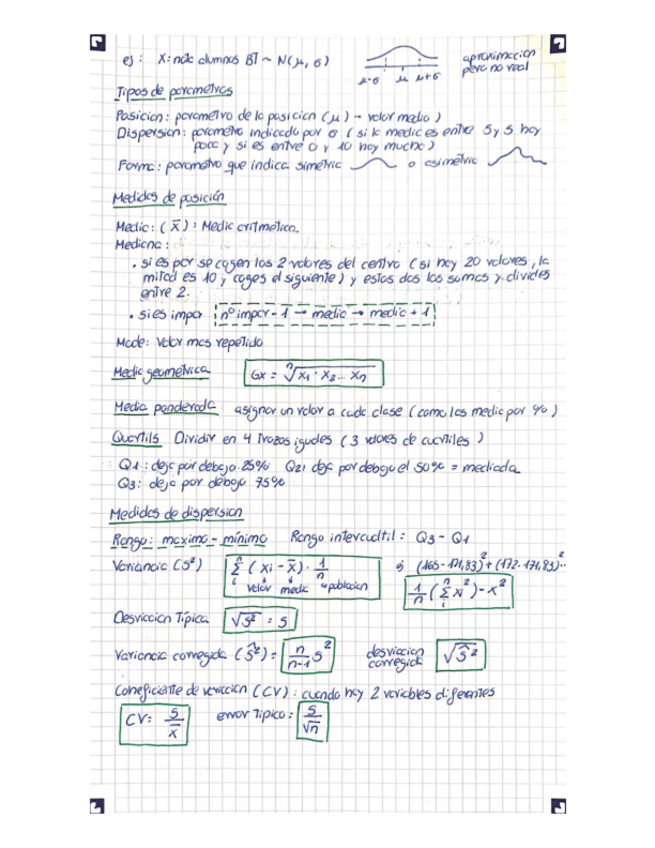 ej: X: nºdc alumnos BI ~ N(μ, σ)
aproximacion
pero no real
μ-σ μ μ+σ
Tipos de parametros
Posicion: parametro de la posicion (μ) → valor medio)
Dispersion: parametro indicado por σ (si la media es entre 5 y 5 hay
poca y si es entre 0 y 10 hay mucha)
Forma: parametro que indica simetric o asimetric
Medidas de posición
Media: (x̄): Media aritmética.
Mediana:
• si es par se cogen los 2 valores del centro (si hay 20 valores, la
mitad es 10 y coges el siguiente) y estos dos los sumas y divides
entre 2.
• si es impar nº impar - 1 → media → media + 1
Moda: Valor mas repetido
Media geométrica Gx = ⁿ√x₁ · x₂... xₙ
Media ponderada asignar un valor a cada clase (como las media por %)
Quartils Dividir en 4 trozos iguales (3 valores de cuartiles)
Q1: deja por debajo 25% Q2: deja por debajo el 50% = mediada
Q3: deja por debajo 75%
Medidas de dispersion
Rango: maximo - mínimo Rango intercualtil: Q3 - Q1
Variancia (S²) Σ (xi - x̄) · 1/n ó (165-171,83)² + (172-171,83)²..
valor media población 1/n (Σ xi²) - x²
Desviacion Típica √S² = S
Variancia corregida (Ŝ²) = n/n-1 S² desviacion
corregida √Ŝ²
Coneficiente de variacion (CV): cuando hay 2 variables diferentes
CV: S/x̄ error típico: S/√n